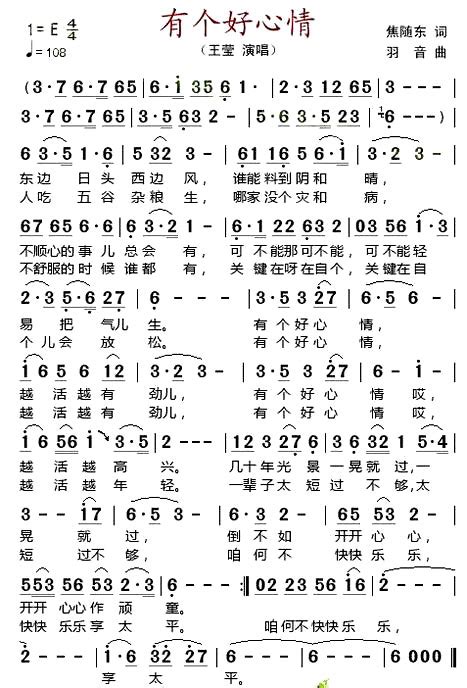 有个好心情
1=E 4/4
♩=108
（王莹 演唱）
焦随东 词
羽 音 曲
(3·7 6·7 65 | 6·i 35 76 5 | 3·7 6·7 65 |
3·7 6·7 65 | 3·5 63 2 - | 05 6·3 5 23 | 6 - - -) |
6 3·5 1·6 | 5 32 2 - | 61 16 5 6·i | 3·2 3 - |
东边 日头 西边 风， 谁能料到阴和 晴，
人吃 五谷 杂粮 生， 哪家没个灾和 病，
67 65 6 6 | 6 3·2 1 - | 6·1 22 63 2 | 03 56 1 3 |
不顺心的事儿总会 有， 可不能那可不能，可不能轻
不舒服的时候谁都 有， 关键在呀在自个，关键在自
2·3 5·6 27 | 6 - - - | 3·5 3 27 | 6·5 6 - |
易 把 气儿 生。 有个好心 情，
个儿会 放 松。 有个好心 情，
i 6 5 6·5 | 3·2 3 - | 3·5 3 27 | 6·5 6 - |
越活越有 劲儿， 有个好心 情哎，
越活越有 劲儿， 有个好心 情哎，
i 6 56 i | 3·5 2 - | 12 3 27 6 | 3 36 32 1 | 5·4 |
越活越高 兴。 几十年光 景一晃就过,一
越活越年 轻。 一辈子太 短过不够,太
3 - - i7 | 6·5 3 - | 6 - i 8 | 65 53 3 - |
晃 就 过， 倒不如 开开心心，
短 过不够， 咱何不 快快乐乐，
553 53 56 5 | 2·3 | 6 - - - :|| 02 23 56 16 | 2 - - - |
开开心心作 顽 童。
快快乐乐享 太 平。 咱何不快快乐 乐，
2 - - | i·6 32 2 | 6 - - - | 6 - - - | 6 0 0 0 ||
享 太 平。